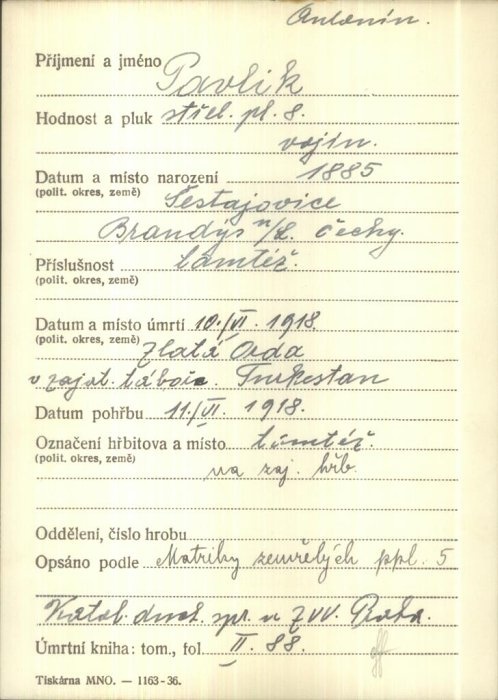 Antonín.
Příjmení a jméno Pavlík
Hodnost a pluk střel. pl. 8.
vojín.
Datum a místo narození 1885
(polit. okres, země) Šestajovice
Brandýs n/L. Čechy.
Příslušnost tamtéž.
(polit. okres, země)
Datum a místo úmrtí 10./VI. 1918.
(polit. okres, země) Zlatá Orda
v zajat. táboře. Turkestan
Datum pohřbu 11./VI. 1918.
Označení hřbitova a místo tamtéž.
(polit. okres, země)
na zaj. hřb.
Oddělení, číslo hrobu
Opsáno podle Matriky zemřelých ppl. 5
Katol. duch. spr. u ZVV. Praha.
Úmrtní kniha: tom., fol. II. 88.
Tiskárna MNO. — 1163-36.